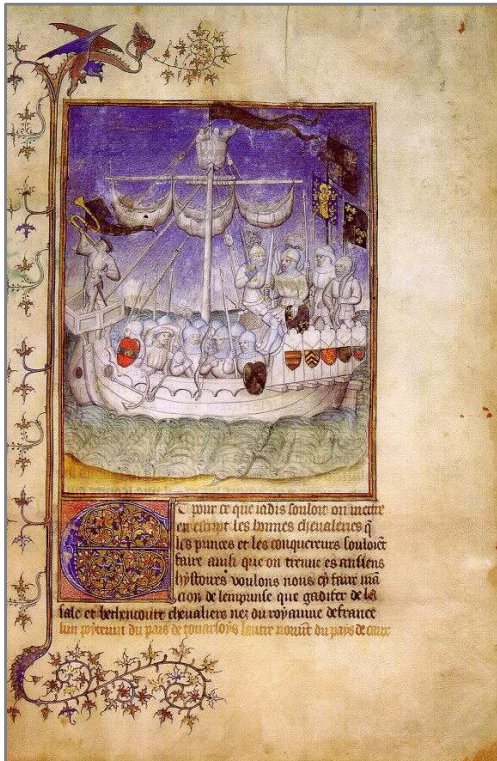 ET pour ce que iadis souloit on mectre
en escript les bonnes cheualeries q̃
les princes et les conquereurs souloiẽt
faire ainsi que on treuue es ansiens
hystoires voulons nous cy faire mã
cion de lemprinse que gadifer de la
sale et bethencourt cheualiers nez du royaume de france
lun poyteuin du pais de touarsoys lautre du pays de caux